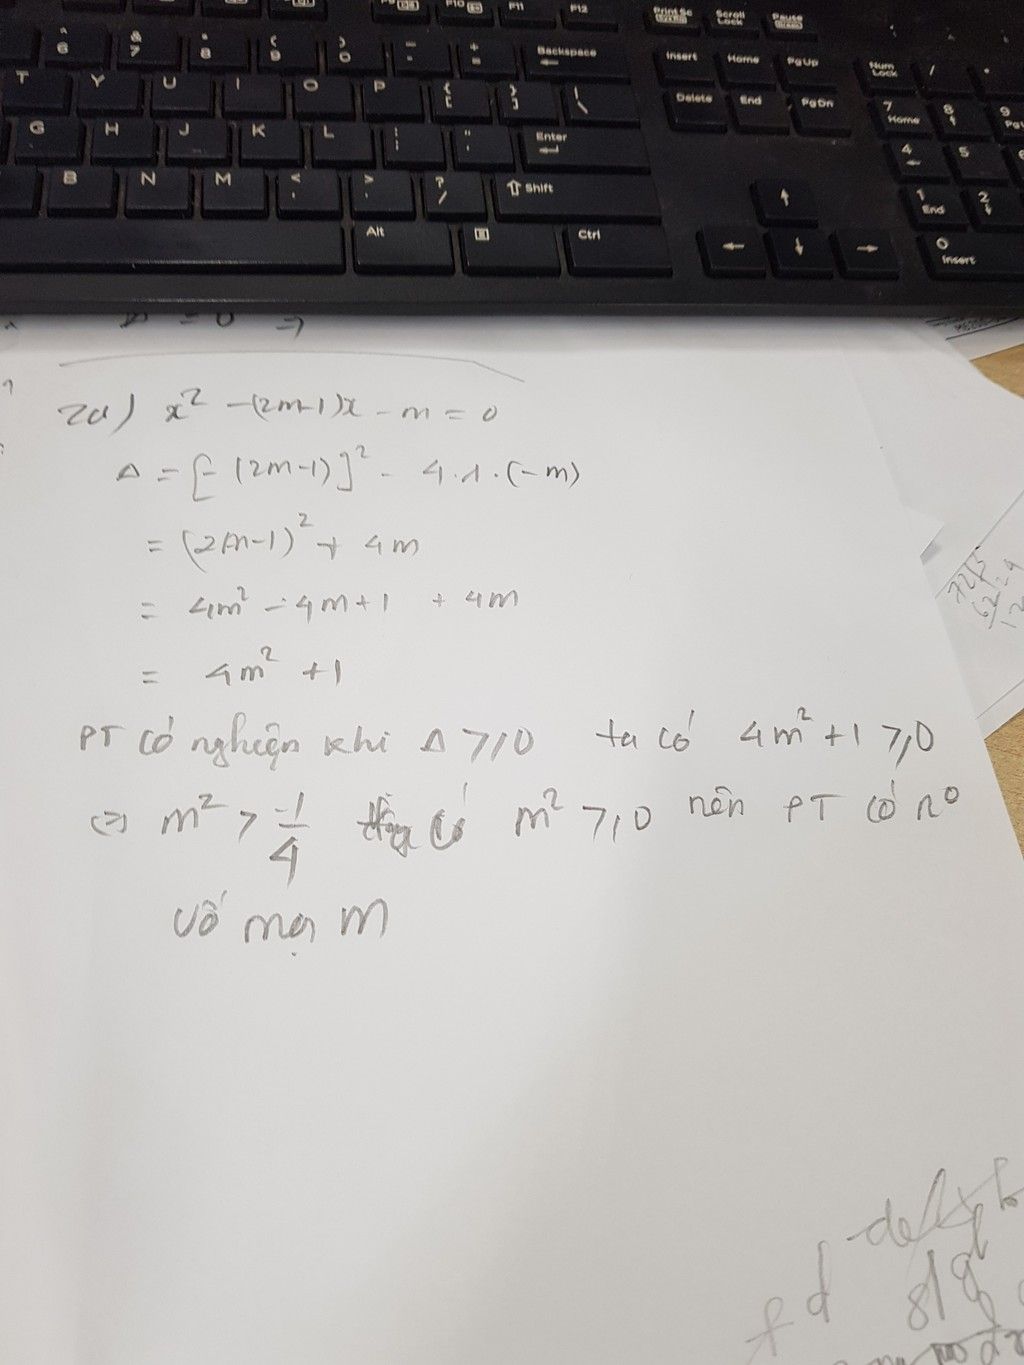 F9
F10
F11
F12
Print Sc
Scroll Lock
Pause
^ 6 & 7 * 8 ( 9 ) 0 _ - + = Backspace
Insert Home PgUp
Num Lock / *
T Y U I O P { [ } ] | \
Delete End PgDn
7 Home 8 9 PgU
G H J K L : ; " ' Enter
4 5 6
B N M < , > . ? / Shift
1 End 2
Alt Ctrl
0 Insert
= 0 ⇒
2a) x² - (2m-1)x - m = 0
Δ = [-(2m-1)]² - 4.1.(-m)
= (2m-1)² + 4m
= 4m² - 4m + 1 + 4m
= 4m² + 1
PT có nghiện khi Δ ≥ 0 ta có 4m² + 1 ≥ 0
(=) m² > -1/4 có m² ≥ 0 nên PT có n⁰
với mọi m